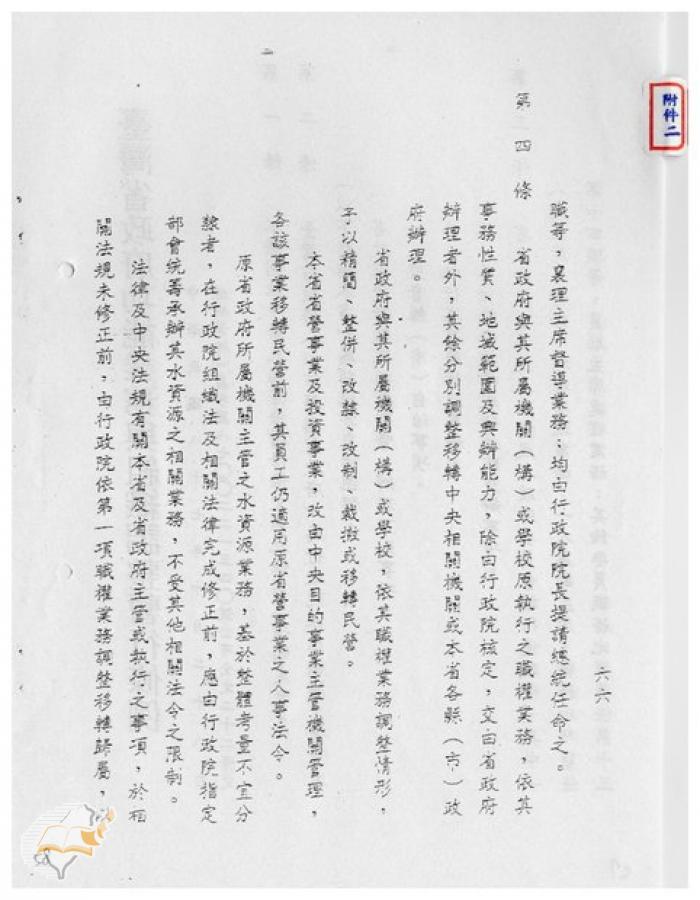 附件二
六六
職等，襄理主席督導業務；均由行政院院長提請總統任命之。
第四條　省政府與其所屬機關（構）或學校原執行之職權業務，依其
事務性質、地域範圍及興辦能力，除由行政院核定，交由省政府
辦理者外，其餘分別調整移轉中央相關機關或本省各縣（市）政
府辦理。
省政府與其所屬機關（構）或學校，依其職權業務調整情形，
予以精簡、整併、改隸、改制、裁撤或移轉民營。
本省省營事業及投資事業，改由中央目的事業主管機關管理，
各該事業移轉民營前，其員工仍適用原省營事業之人事法令。
原省政府所屬機關主管之水資源業務，基於整體考量不宜分
隸者，在行政院組織法及相關法律完成修正前，應由行政院指定
部會統籌承辦其水資源之相關業務，不受其他相關法令之限制。
法律及中央法規有關本省及省政府主管或執行之事項，於相
關法規未修正前，由行政院依第一項職權業務調整移轉歸屬，以
58